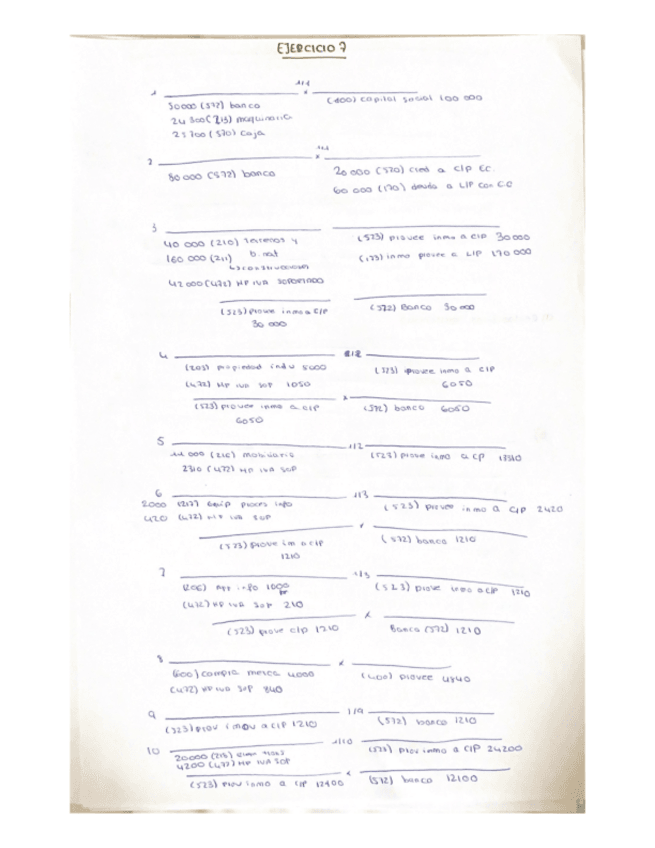 EJERCICIO 7
1 1/1
50000 (572) banco (100) capital social 100 000
24 300 (213) maquinaria
25700 (570) caja
2
80 000 (572) banco 20 000 (520) cred a C/P CC.
60 000 (170) deuda a L/P con CC
3
40 000 (210) terrenos y b. nat (523) provee inmo a C/P 30000
160 000 (211) construcciones (173) inmo provee a L/P 170 000
42 000 (472) HP IVA SOPORTADO
(523) provee inmo a C/P (572) Banco 30 000
30 000
4 1/2
(203) propiedad indu 5000 (523) provee inmo a C/P
(472) HP IVA SOP 1050 6050
(523) provee inmo a C/P (572) banco 6050
6050
5 1/2
11 000 (216) mobiliario (523) provee inmo a CP 13310
2310 (472) HP IVA SOP
6 1/3
2000 (217) equip proces info (523) provee inmo a C/P 2420
420 (472) HP IVA SOP
(523) provee inm a C/P (572) banco 1210
1210
7 1/3
(206) apr info 1000 (523) prove inmo a C/P 1210
(472) HP IVA SOP 210
(523) prove C/P 1210 Banco (572) 1210
8
(600) compra merca 4000 (400) provee 4840
(472) HP IVA SOP 840
9 1/9
(523) prov inmov a C/P 1210 (572) banco 1210
10 1/10
20000 (218) (523) prov inmo a C/P 24200
4200 (472) HP IVA SOP
(523) prov inmo a C/P 12100 (572) banco 12100